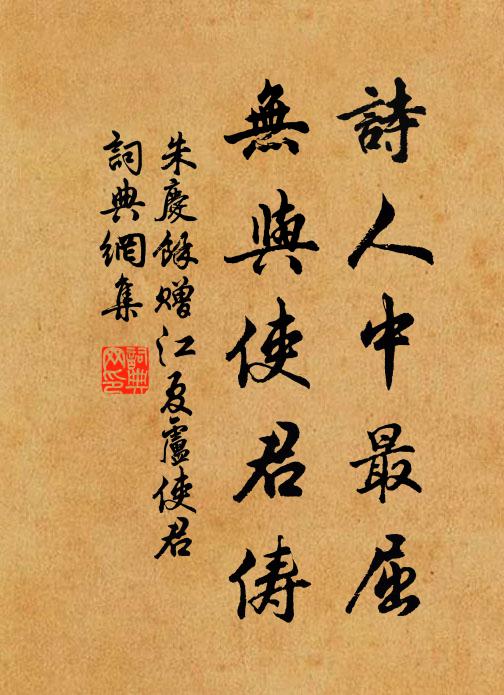 詩人中最屈
無與使君儔
朱慶餘贈江夏盧使君
詞典網集
詞典網印